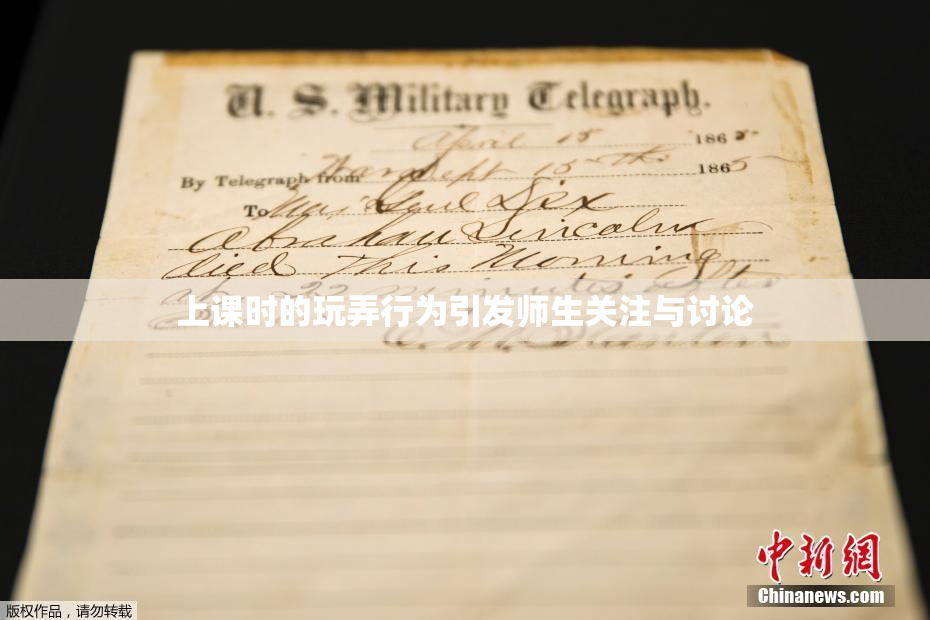 U. S. Military Telegraph.
April 15 1865
By Telegraph from War Dept 15th 1865
To Maj Genl Dix
Abraham Lincoln
died This Morning
at 22 minutes after
上课时的玩弄行为引发师生关注与讨论
E. M. Stanton
中新网
Chinanews.com
版权作品，请勿转载